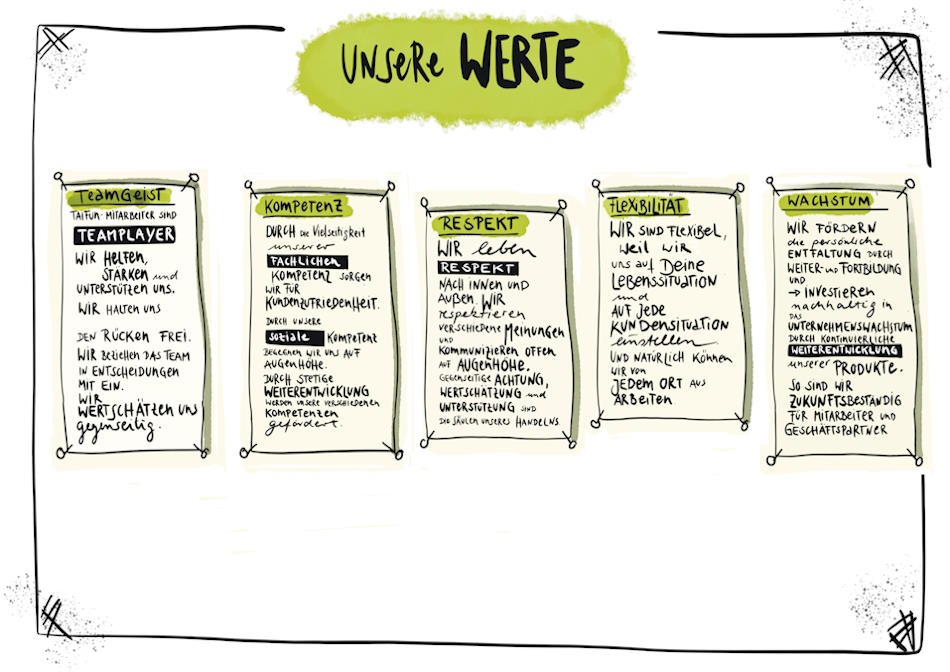 UNSERE WERTE
TEAMGEIST
TAIFUN-MITARBEITER SIND
TEAMPLAYER
WIR HELFEN,
STÄRKEN und
UNTERSTÜTZEN UNS.
WIR HALTEN UNS
DEN RÜCKEN FREI.
WIR BEZIEHEN DAS TEAM
IN ENTSCHEIDUNGEN
MIT EIN.
WIR
WERTSCHÄTZEN UNS
gegenseitig.
KOMPETENZ
DURCH DIE VIELSEITIGKEIT
unserer
FACHLICHEN
KOMPETENZ SORGEN
WIR FÜR
KUNDENZUFRIEDENHEIT.
DURCH UNSERE
SOZIALE KOMPETENZ
BEGEGNEN WIR UNS AUF
AUGENHÖHE.
DURCH STETIGE
WEITERENTWICKLUNG
WERDEN UNSERE VERSCHIEDENEN
KOMPETENZEN
gefördert.
RESPEKT
WIR leben
RESPEKT
NACH INNEN UND
AUßEN. WIR
respektieren
VERSCHIEDENE MEINUNGEN
UND
KOMMUNIZIEREN OFFEN
AUF AUGENHÖHE.
GEGENSEITIGE ACHTUNG,
WERTSCHÄTZUNG und
UNTERSTÜTZUNG SIND
DIE SÄULEN UNSERES HANDELNS.
FLEXIBILITÄT
WIR SIND FLEXIBEL,
WEIL WIR
UNS AUF DEINE
LEBENSSITUATION
und
AUF JEDE
KUNDENSITUATION
einstellen
UND NATÜRLICH KÖNNEN
WIR VON
JEDEM ORT AUS
ARBEITEN
WACHSTUM
WIR FÖRDERN
die persönliche
ENTFALTUNG DURCH
WEITER- und FORTBILDUNG
UND
→ INVESTIEREN
nachhaltig in
DAS
UNTERNEHMENSWACHSTUM
DURCH KONTINUIERLICHE
WEITERENTWICKLUNG
unserer PRODUKTE.
SO SIND WIR
ZUKUNFTSBESTÄNDIG
FÜR MITARBEITER UND
GESCHÄFTSPARTNER